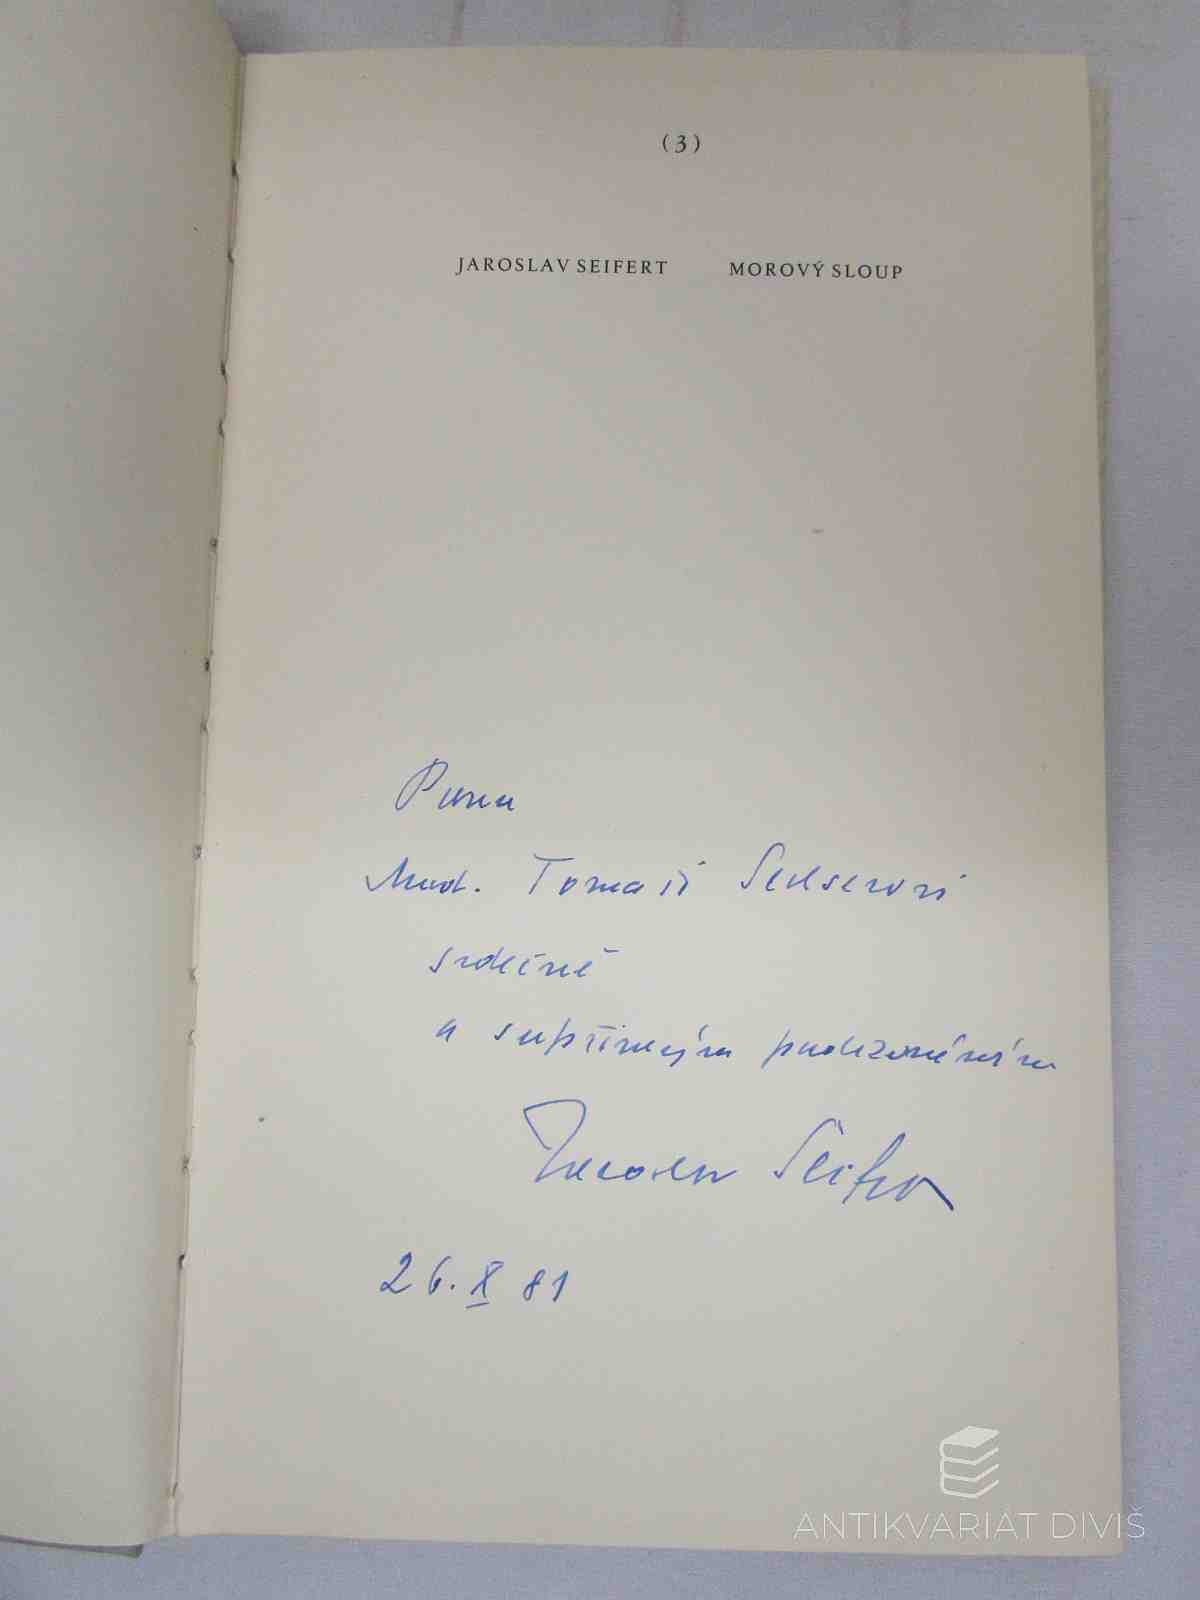 (3)
JAROSLAV SEIFERT MOROVÝ SLOUP
Panu
Mud. Tomáši
srdečně
s upřímným poděkováním
Jaroslav Seifert
26. X 81
ANTIKVARIÁT DIVIŠ